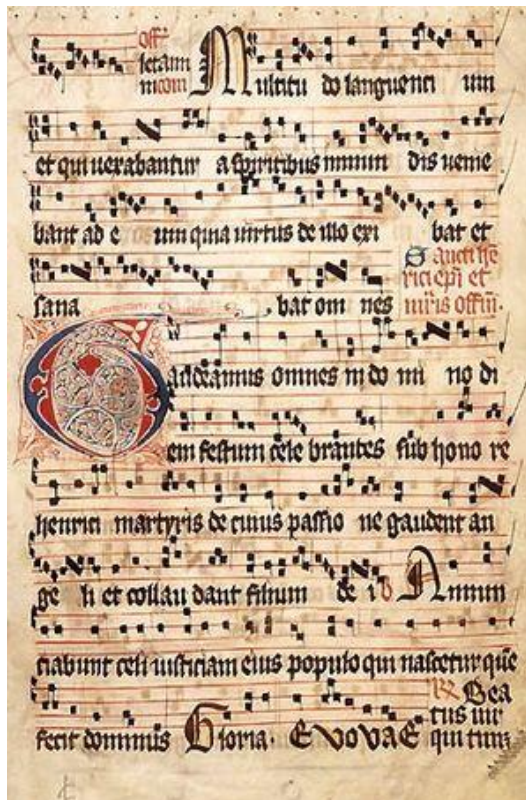 Multitu do languenti um
et qui uexabantur a spiritibus inmun dis uenie
bant ad e um quia uirtus de illo exi bat et
sana bat om nes
Sancti hē
rici epī et
mr̄is offm̄.
Gaudeamus omnes in do mi no di
em festum cele brantes sub hono re
henrici martyris de cuius passio ne gaudent an
ge li et collau dant filium de i Annun
ciabunt celi iusticiam eius populo qui nascetur quē
fecit dominus Gloria. EVOVAE
Bea
tus uir
qui tim